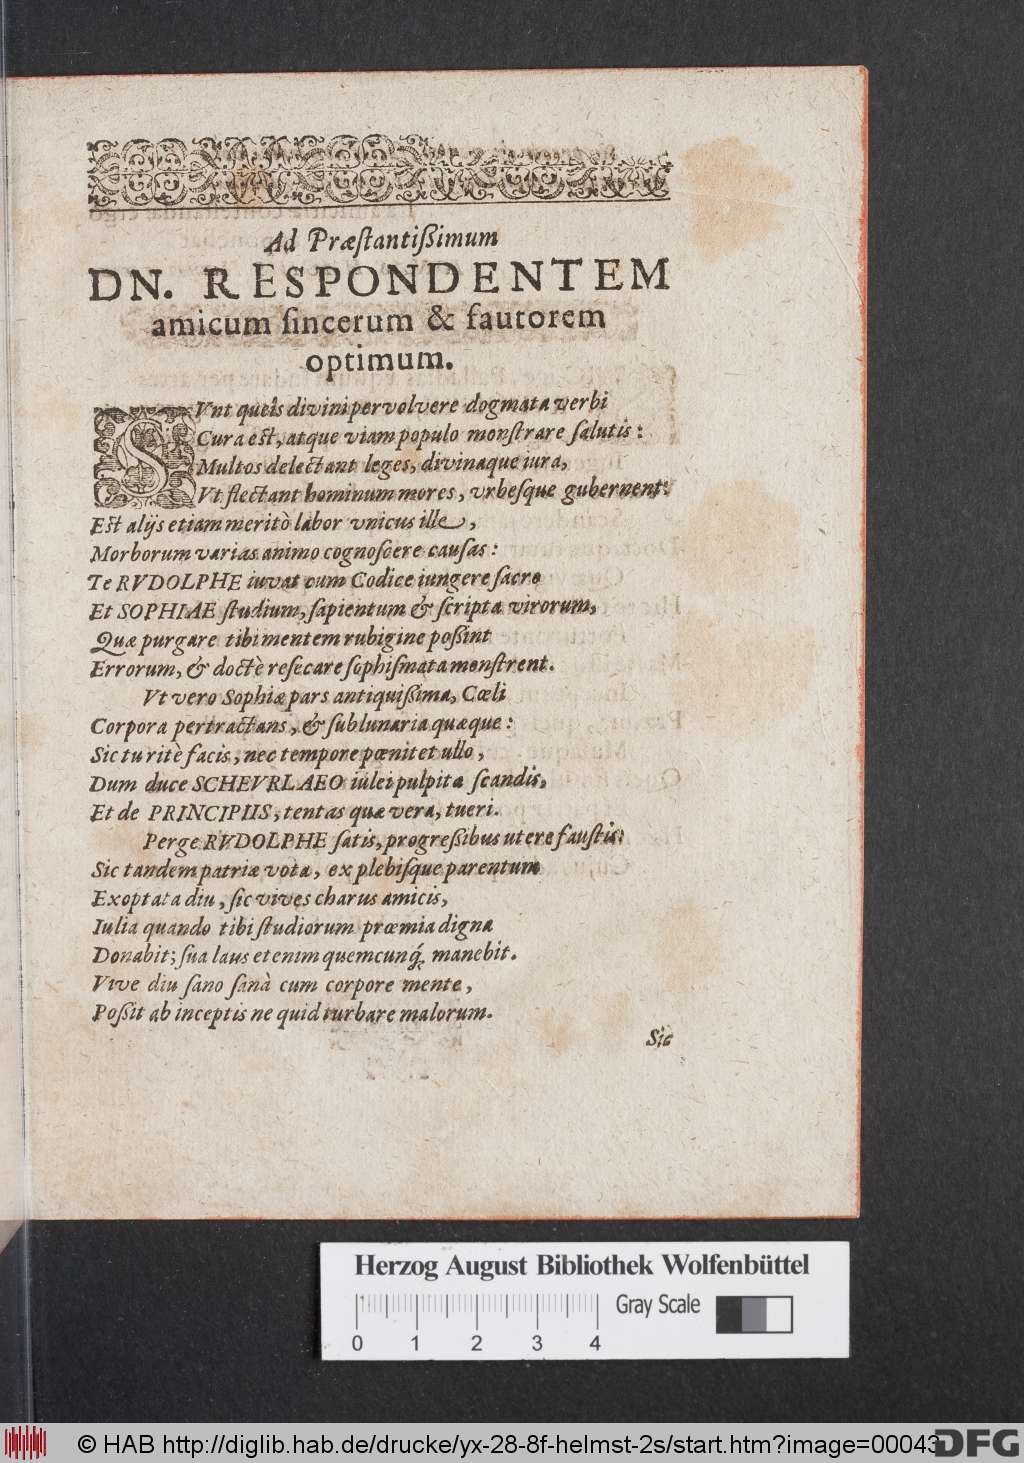 Ad Præſtantiſsimum
DN. RESPONDENTEM
amicum ſincerum & fautorem
optimum.
SVnt queis divini pervolvere dogmata verbi
Cura est, atque viam populo monſtrare ſalutis:
Multos delectant leges, divinaque iura,
Vt flectant hominum mores, vrbeſque gubernent:
Est alijs etiam meritò labor vnicus ille,
Morborum varias animo cognoſcere cauſas:
Te RVDOLPHE iuvat cum Codice iungere ſacro
Et SOPHIAE ſtudium, ſapientum & ſcripta virorum,
Quæ purgare tibi mentem rubigine poßint
Errorum, & doctè reſecare ſophiſmata monſtrent.
Vt vero Sophiæ pars antiquißima, Cœli
Corpora pertractans, & ſublunaria quæque:
Sic tu ritè facis, nec tempore pœnitet ullo,
Dum duce SCHEVRLAEO iülei pulpita ſcandis,
Et de PRINCIPIIS, tentas quæ vera, tueri.
Perge RVDOLPHE ſatis, progreßibus utere fauſtis:
Sic tandem patriæ vota, ex plebiſque parentum
Exoptata diu, ſic vives charus amicis,
Iulia quando tibi ſtudiorum præmia digna
Donabit; ſua laus etenim quemcunq́; manebit.
Vive diu ſano ſanà cum corpore mente,
Poßit ab inceptis ne quid turbare malorum.
Sic
Herzog August Bibliothek Wolfenbüttel
Gray Scale
0 1 2 3 4
© HAB http://diglib.hab.de/drucke/yx-28-8f-helmst-2s/start.htm?image=00043
DFG